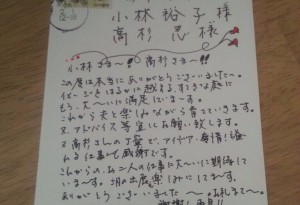 小林裕子様
高杉 忍様
小林さま〜!! 高杉さま〜!!
この度は本当にありがとうございました〜。
イメージをはるかに越えるすてきな庭に
もう、大〜いに満足しています。
これから夫と楽しみながら育てていきます。
又アドバイス等宜しくお願い致します。
又高杉さんの丁寧で、アイデア・愛情溢れる
る仕事にも感謝です。
これからのお二人の仕事に大〜いに期待して
います。次の出展楽しみにしてます。
ありがとうございました〜。